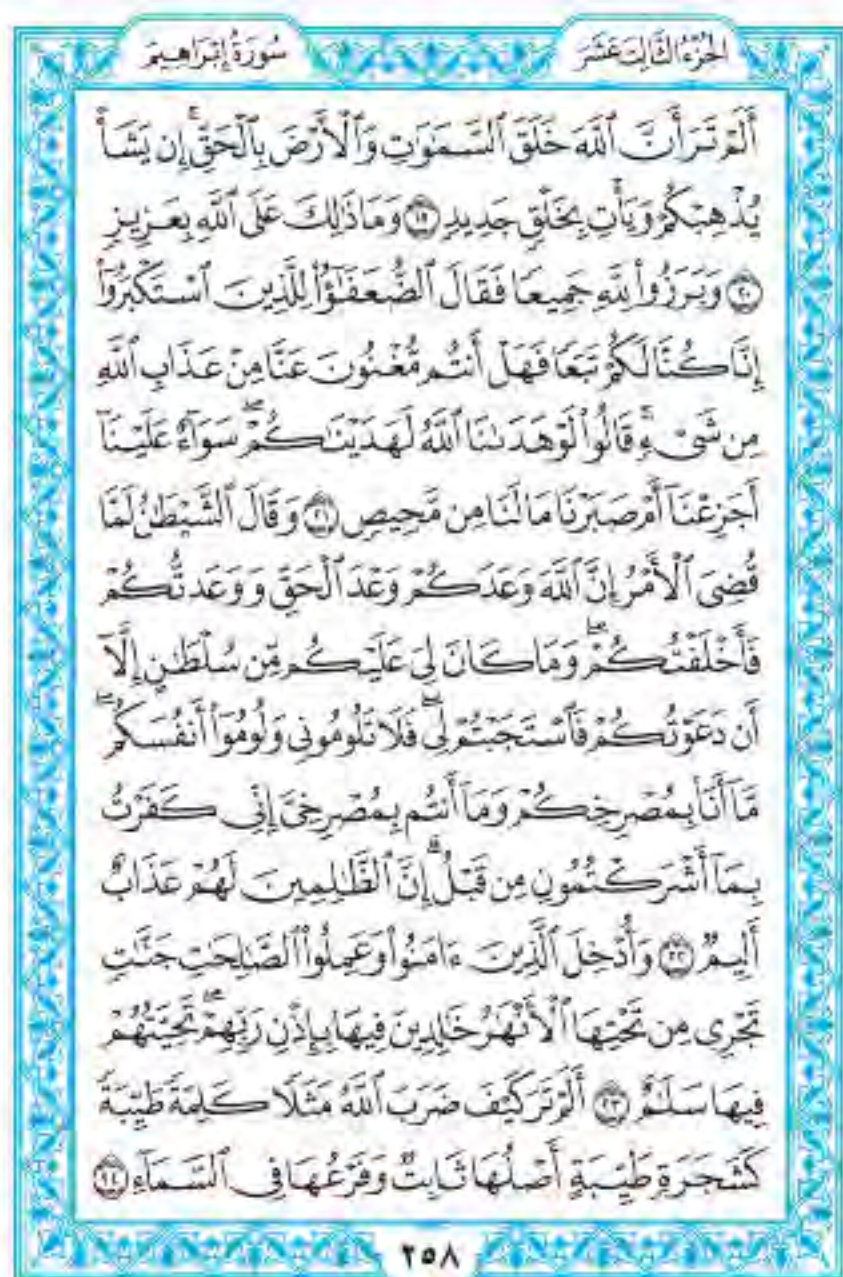 الجُزْءُ الثَّالِثَ عَشَرَ
سُورَةُ إِبْرَاهِيمَ
أَلَمْ تَرَ أَنَّ ٱللَّهَ خَلَقَ ٱلسَّمَٰوَٰتِ وَٱلْأَرْضَ بِٱلْحَقِّ ۚ إِن يَشَأْ
يُذْهِبْكُمْ وَيَأْتِ بِخَلْقٍ جَدِيدٍ ۝١٩ وَمَا ذَٰلِكَ عَلَى ٱللَّهِ بِعَزِيزٍ
۝٢٠ وَبَرَزُوا۟ لِلَّهِ جَمِيعًا فَقَالَ ٱلضُّعَفَٰٓؤُا۟ لِلَّذِينَ ٱسْتَكْبَرُوٓا۟
إِنَّا كُنَّا لَكُمْ تَبَعًا فَهَلْ أَنتُم مُّغْنُونَ عَنَّا مِنْ عَذَابِ ٱللَّهِ
مِن شَىْءٍ ۚ قَالُوا۟ لَوْ هَدَىٰنَا ٱللَّهُ لَهَدَيْنَٰكُمْ ۖ سَوَآءٌ عَلَيْنَآ
أَجَزِعْنَآ أَمْ صَبَرْنَا مَا لَنَا مِن مَّحِيصٍ ۝٢١ وَقَالَ ٱلشَّيْطَٰنُ لَمَّا
قُضِىَ ٱلْأَمْرُ إِنَّ ٱللَّهَ وَعَدَكُمْ وَعْدَ ٱلْحَقِّ وَوَعَدتُّكُمْ
فَأَخْلَفْتُكُمْ ۖ وَمَا كَانَ لِىَ عَلَيْكُم مِّن سُلْطَٰنٍ إِلَّآ
أَن دَعَوْتُكُمْ فَٱسْتَجَبْتُمْ لِى ۖ فَلَا تَلُومُونِى وَلُومُوٓا۟ أَنفُسَكُم ۖ
مَّآ أَنَا۠ بِمُصْرِخِكُمْ وَمَآ أَنتُم بِمُصْرِخِىَّ ۖ إِنِّى كَفَرْتُ
بِمَآ أَشْرَكْتُمُونِ مِن قَبْلُ ۗ إِنَّ ٱلظَّٰلِمِينَ لَهُمْ عَذَابٌ
أَلِيمٌ ۝٢٢ وَأُدْخِلَ ٱلَّذِينَ ءَامَنُوا۟ وَعَمِلُوا۟ ٱلصَّٰلِحَٰتِ جَنَّٰتٍ
تَجْرِى مِن تَحْتِهَا ٱلْأَنْهَٰرُ خَٰلِدِينَ فِيهَا بِإِذْنِ رَبِّهِمْ ۖ تَحِيَّتُهُمْ
فِيهَا سَلَٰمٌ ۝٢٣ أَلَمْ تَرَ كَيْفَ ضَرَبَ ٱللَّهُ مَثَلًا كَلِمَةً طَيِّبَةً
كَشَجَرَةٍ طَيِّبَةٍ أَصْلُهَا ثَابِتٌ وَفَرْعُهَا فِى ٱلسَّمَآءِ ۝٢٤
٢٥٨